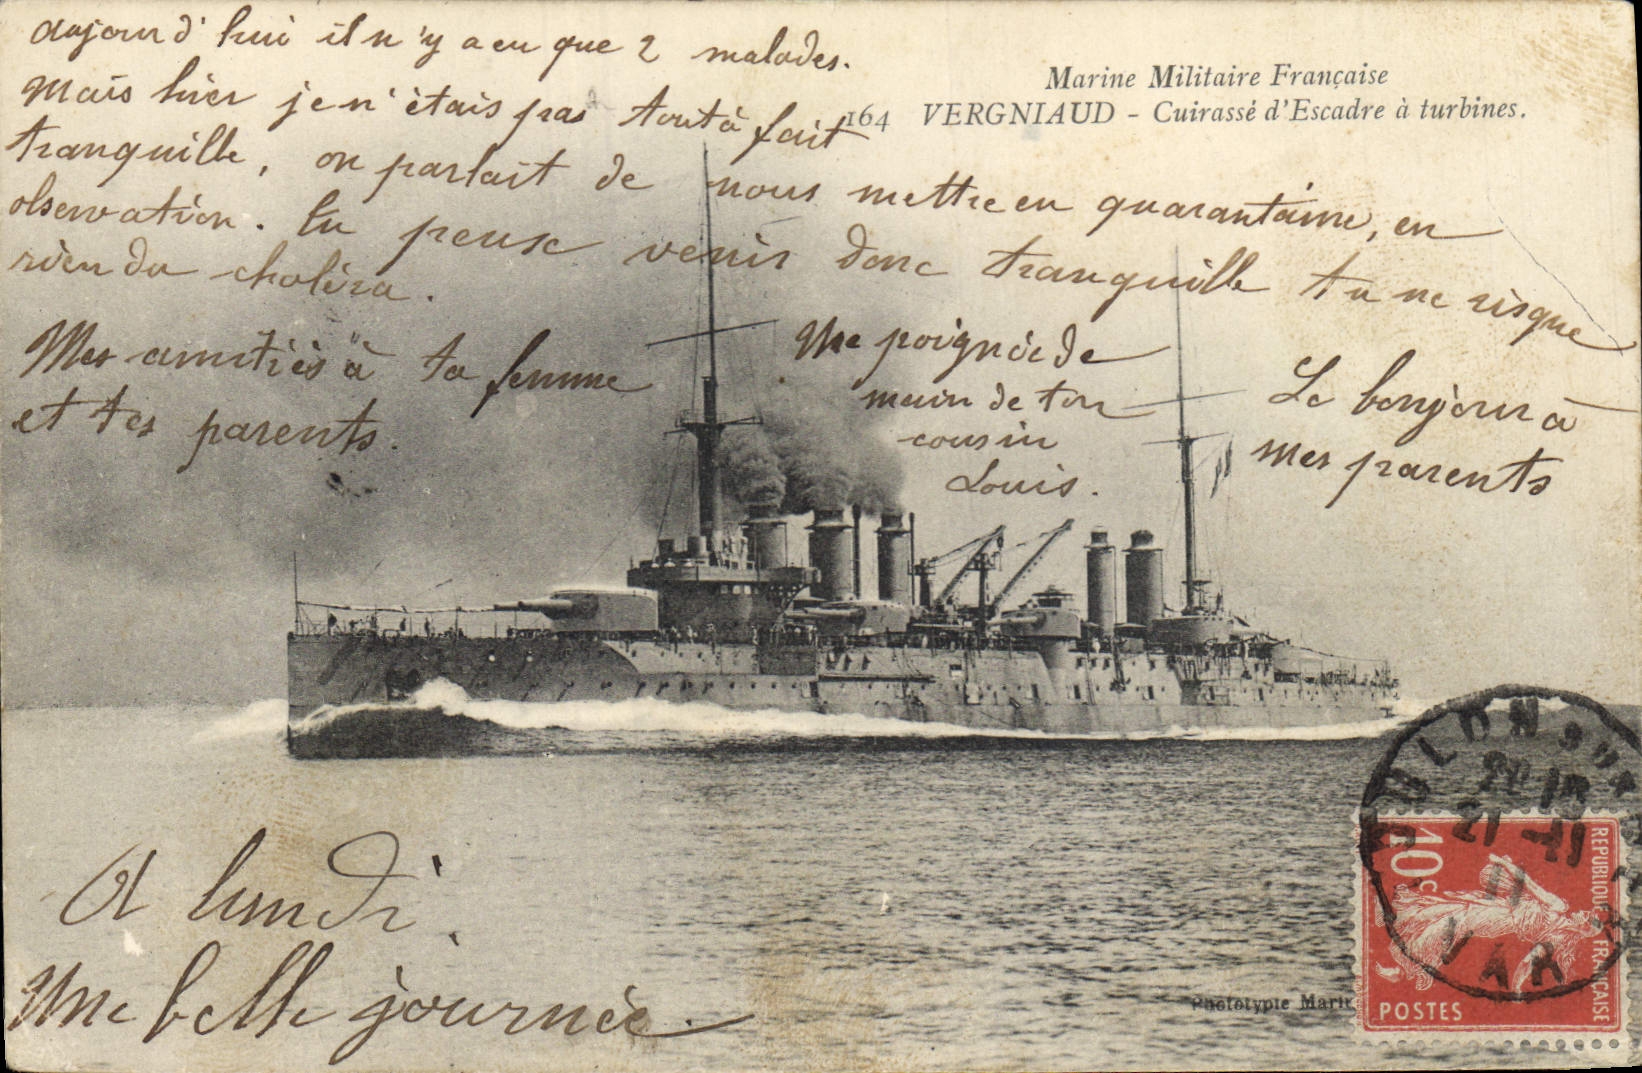 aujourd'hui il n'y a eu que 2 malades.
Mais hier je n'étais pas tout à fait
tranquille, on parlait de nous mettre en quarantaine, en
observation. Tu peux venir donc tranquille tu ne risque
rien du choléra.
Mes amitiés à ta femme
et tes parents.
Une poignée de
main de ton
cousin
Louis.
Le bonjour à
mes parents
Marine Militaire Française
164 VERGNIAUD - Cuirassé d'Escadre à turbines.
A lundi.
Une belle journée.
Phototypie Mari
TOULON S UR
VAR
11
10c
REPUBLIQUE FRANÇAISE
POSTES